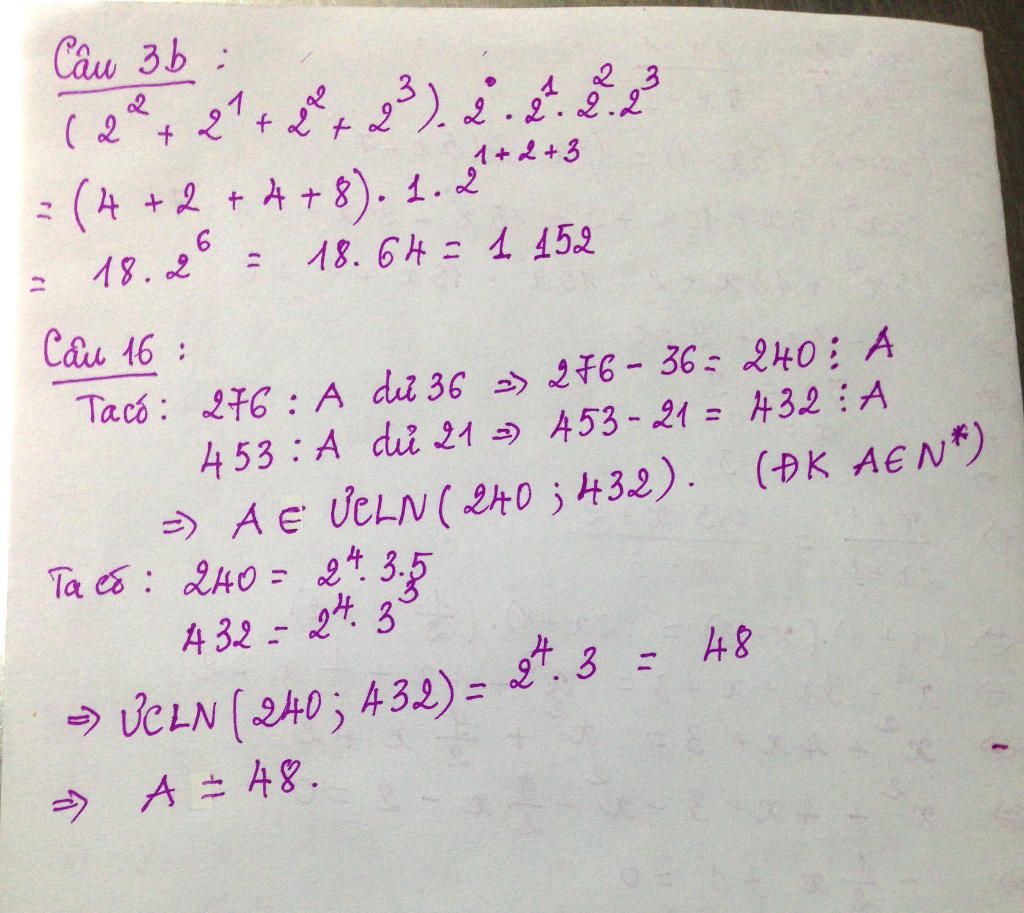 Câu 3b :
(2² + 2¹ + 2² + 2³). 2⁰ . 2¹ . 2² . 2³
= (4 + 2 + 4 + 8) . 1 . 2¹⁺²⁺³
= 18 . 2⁶ = 18 . 64 = 1 152
Câu 16 :
Ta có : 276 : A dư 36 => 276 - 36 = 240 ⋮ A
453 : A dư 21 => 453 - 21 = 432 ⋮ A
=> A ∈ ƯCLN(240 ; 432). (ĐK A ∈ N*)
Ta có : 240 = 2⁴. 3.5
432 = 2⁴. 3³
=> ƯCLN(240 ; 432) = 2⁴. 3 = 48
=> A = 48.